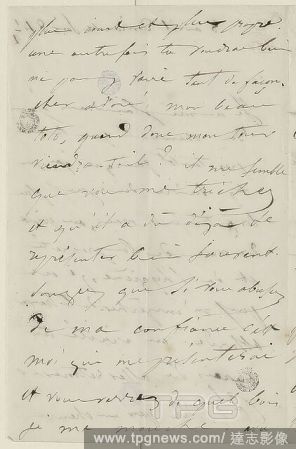 plus
une autre fois tu voudras bien
ne pas y faire tant de façon
cher adoré, mon beau
toto, quand donc mon tour
viendra-t-il ? il me semble
que vous me trichez
et qu'il a dû déjà se
représenter bien souvent.
songez que si vous abusez
de ma confiance c'est
moi qui me présenterai
et vous verrez de quel bois
je me
TPG
www.tpgnews.com/達志影像